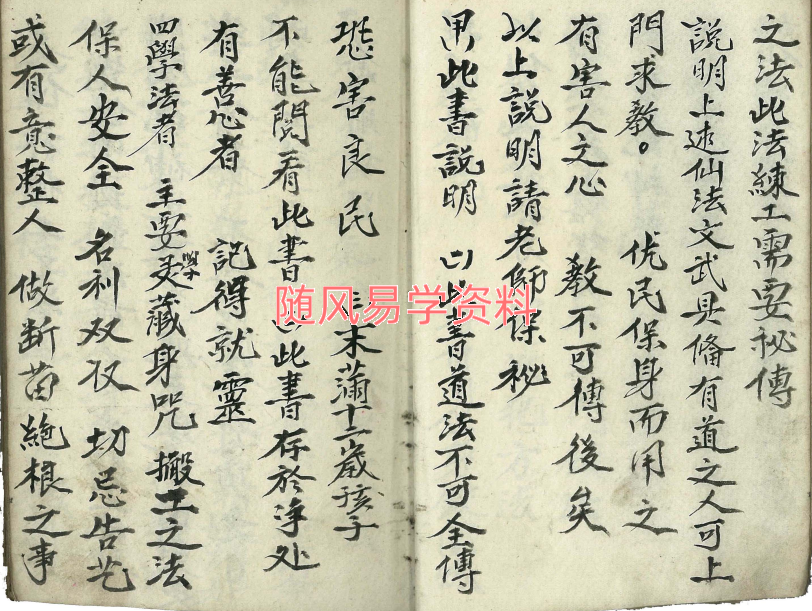 之法此法練工需要秘傳
說明上述仙法文武具备有道之人可上
門求教。 优民保身而用之
有害人之心 教不可傳後矣
以上說明請老師保秘
此書說明 此書道法不可全傳
恐害良民 未滿十二歲孩子
不能閱看此書 此書存於净处
有善心者 記得就靈
四學法者 主要學藏身咒搬工之法
保人安全 名利双收 切忌告
或有意整人 做断苗絕根之事
随风易学资料